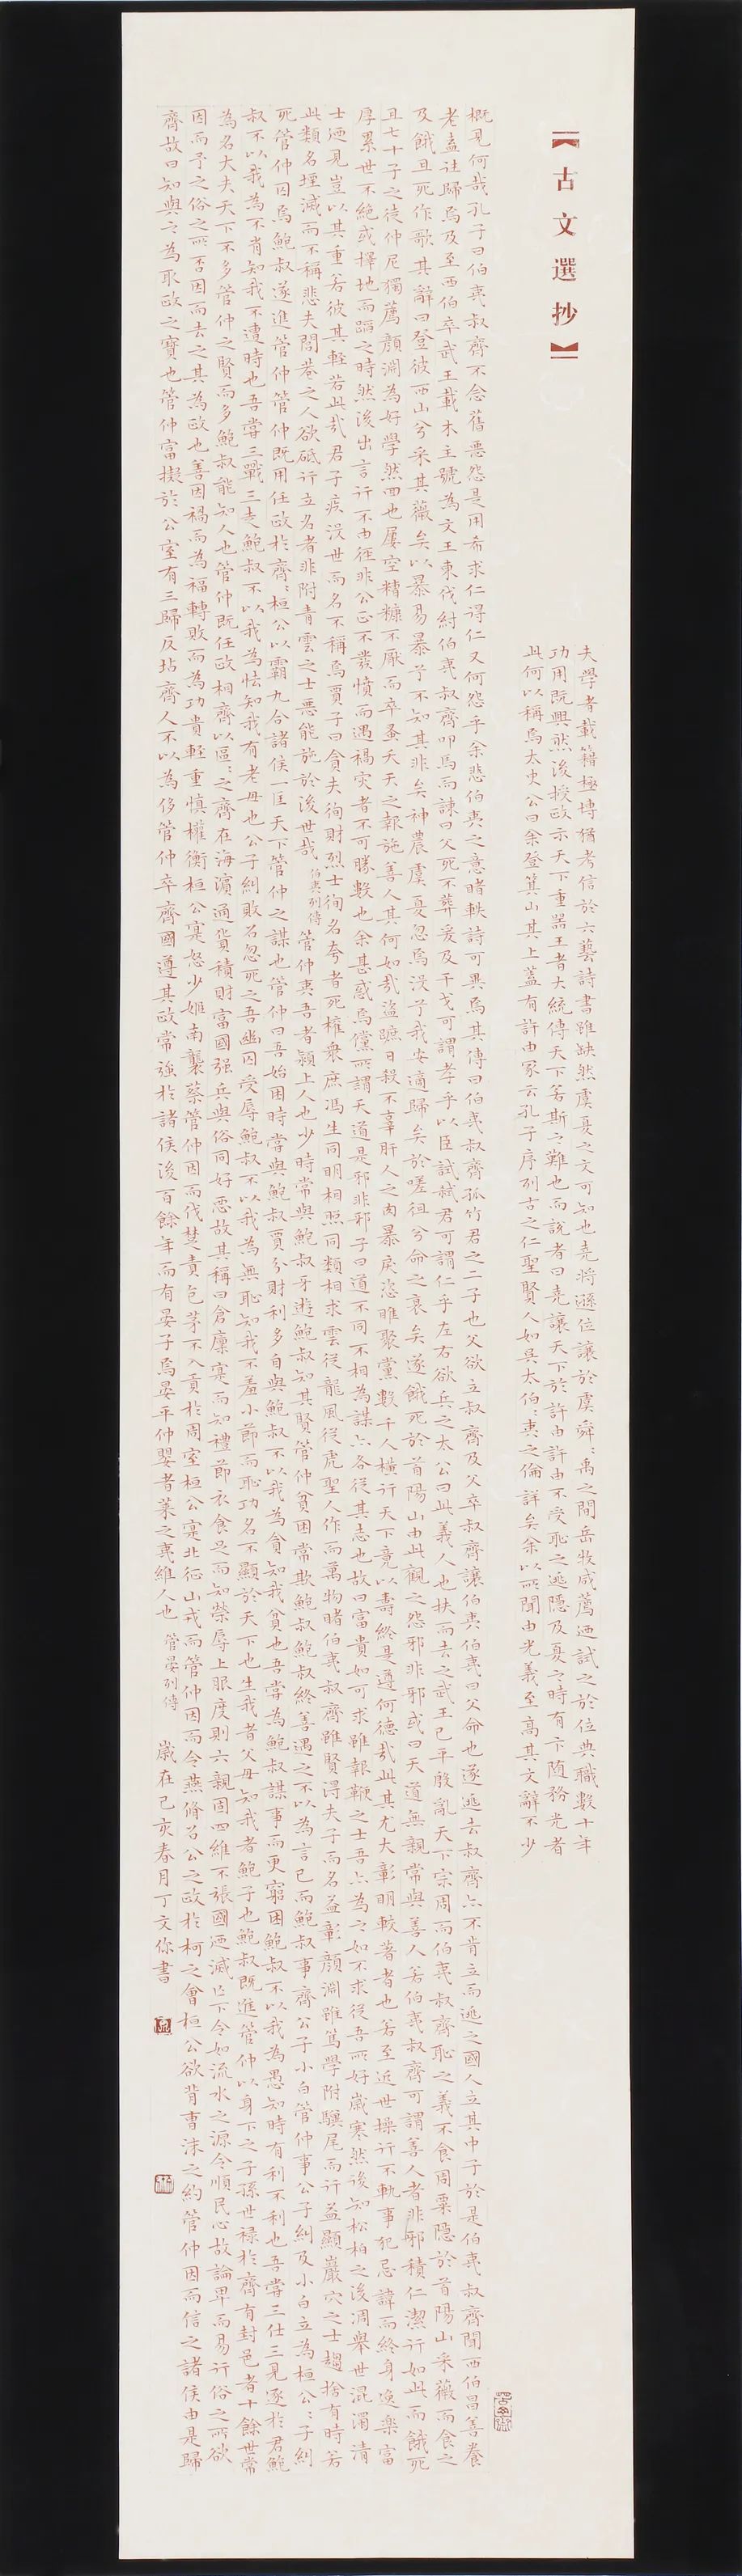 【古文選抄】
夫學者載籍極博猶考信於六藝詩書雖缺然虞夏之文可知也堯將遜位讓於虞舜:禹之間岳牧咸薦迺試之於位典職數十年
功用既興然後授政示天下重器王者大統傳天下若斯之難也而說者曰堯讓天下於許由許由不受恥之逃隱及夏之時有卞随務光者
此何以稱焉太史公曰余登箕山其上蓋有許由冢云孔子序列古之仁聖賢人如吳太伯:夷之倫詳矣余以所聞由光義至高其文辭不少
概見何哉孔子曰伯夷叔齊不念舊惡怨是用希求仁得仁又何怨乎余悲伯夷之意睹軼詩可異焉其傳曰伯夷叔齊孤竹君之二子也父欲立叔齊及父卒叔齊讓伯夷伯夷曰父命也遂逃去叔齊亦不肯立而逃之國人立其中子於是伯夷叔齊聞西伯昌善養
老盍往歸焉及至西伯卒武王載木主號為文王東伐紂伯夷叔齊叩馬而諫曰父死不葬爰及干戈可謂孝乎以臣試弒君可謂仁乎左右欲兵之太公曰此義人也扶而去之武王已平殷亂天下宗周而伯夷叔齊恥之義不食周粟隱於首陽山采薇而食之
及餓且死作歌其辭曰登彼西山兮采其薇矣以暴易暴兮不知其非矣神農虞夏忽焉没兮我安適歸矣於嗟徂兮命之衰矣遂餓死於首陽山由此觀之怨邪非邪或曰天道無親常與善人若伯夷叔齊可謂善人者非邪積仁潔行如此而餓死
且七十子之徒仲尼獨薦顏淵為好學然回也屢空糟糠不厭而卒蚤夭天之報施善人其何如哉盜蹠日殺不辜肝人之肉暴戾恣睢聚黨數千人橫行天下竟以壽終是遵何德哉此其尤大彰明較著者也若至近世操行不軌事犯忌諱而終身逸樂富
厚累世不絕或擇地而蹈之時然後出言行不由徑非公正不發憤而遇禍災者不可勝數也余甚惑焉儻所謂天道是邪非邪子曰道不同不相為謀亦各從其志也故曰富貴如可求雖執鞭之士吾亦為之如不求從吾所好歲寒然後知松柏之後凋舉世混濁清
士迺見豈以其重若彼其輕若此哉君子疾沒世而名不稱焉賈子曰貪夫徇財烈士徇名夸者死權衆庶馮生同明相照同類相求雲從龍風從虎聖人作而萬物睹伯夷叔齊雖賢得夫子而名益彰顏淵雖篤學附驥尾而行益顯巖穴之士趨捨有時若
此類名堙滅而不稱悲夫閭巷之人欲砥行立名者非附青雲之士惡能施於後世哉 伯夷列傳 管仲夷吾者潁上人也少時常與鮑叔牙遊鮑叔知其賢管仲貧困常欺鮑叔鮑叔終善遇之不以為言已而鮑叔事齊公子小白管仲事公子糾及小白立為桓公:子糾
死管仲囚焉鮑叔遂進管仲管仲既用任政於齊:桓公以霸九合諸侯一匡天下管仲之謀也管仲曰吾始困時嘗與鮑叔賈分財利多自與鮑叔不以我為貪知我貧也吾嘗為鮑叔謀事而更窮困鮑叔不以我為愚知時有利不利也吾嘗三仕三見逐於君鮑
叔不以我為不肖知我不遭時也吾嘗三戰三走鮑叔不以我為怯知我有老母也公子糾敗召忽死之吾幽囚受辱鮑叔不以我為無恥知我不羞小節而恥功名不顯於天下也生我者父母知我者鮑子也鮑叔既進管仲以身下之子孫世祿於齊有封邑者十餘世常
為名大夫天下不多管仲之賢而多鮑叔能知人也管仲既任政相齊以區:之齊在海濱通貨積財富國强兵與俗同好惡故其稱曰倉廩實而知禮節衣食足而知榮辱上服度則六親固四維不張國迺滅亡下令如流水之源令順民心故論卑而易行俗之所欲
因而予之俗之所否因而去之其為政也善因禍而為福轉敗而為功貴輕重慎權衡桓公寔怒少姬南襲蔡管仲因而伐楚責包茅不入貢於周室桓公寔北征山戎而管仲因而令燕脩召公之政於柯之會桓公欲背曹沫之約管仲因而信之諸侯由是歸
齊故曰知與之為取政之寶也管仲富擬於公室有三歸反坫齊人不以為侈管仲卒齊國遵其政常強於諸侯後百餘年而有晏子焉晏平仲嬰者萊之夷維人也 管晏列傳 歲在己亥春月丁文你書